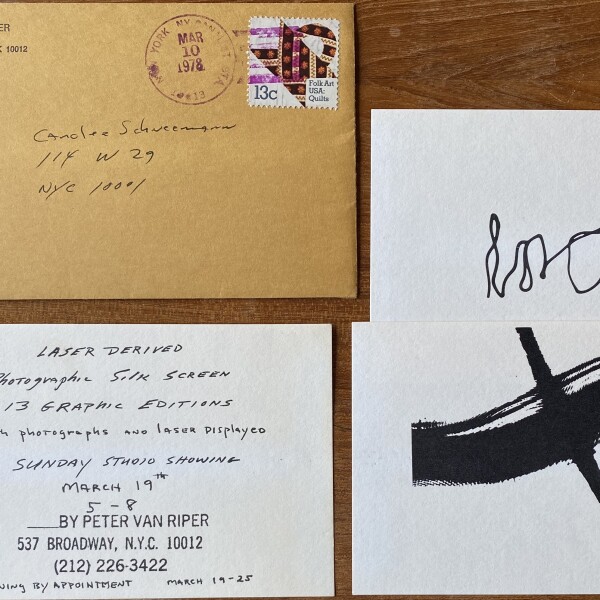 ER
K 10012
YORK, NY
MAR
10
1978
13c
Folk Art
USA:
Quilts
Carolee Schneemann
114 W 29
NYC 10001
LASER DERIVED
Photographic Silk Screen
13 GRAPHIC EDITIONS
photographs AND LASER DISPLAYED
SUNDAY STUDIO SHOWING
MARCH 19TH
5 - 8
BY PETER VAN RIPER
537 BROADWAY, N.Y.C. 10012
(212) 226-3422
BY APPOINTMENT MARCH 19-25